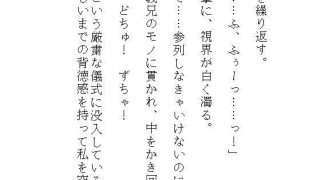 を繰り返す。
……ふ、ふぅーっ……っ！」
撃に、視界が白く濁る。
て……参列しなきゃいけないのに
義兄のモノに貫かれ、中をかき回
どちゅ！　ずちゃ！
という厳粛な儀式に没入している
しいまでの背徳感を持って私を